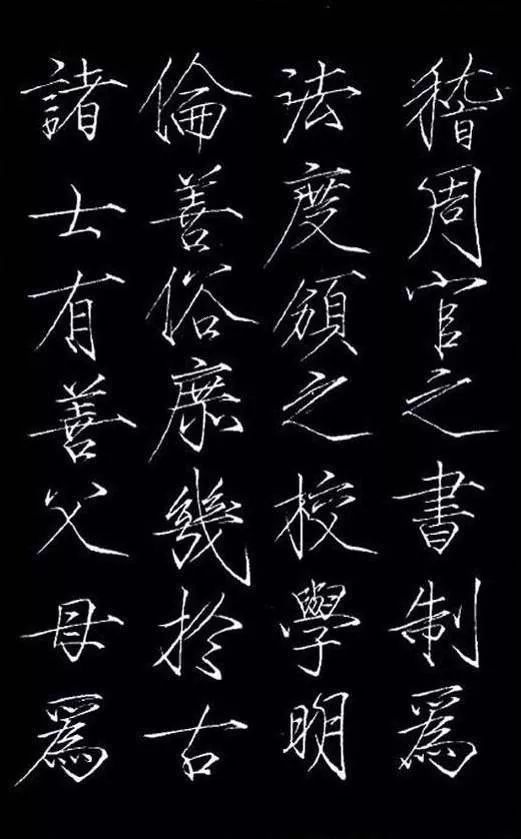 稽周官之書制為
法度頒之校學明
倫善俗庶幾於古
諸士有善父母為